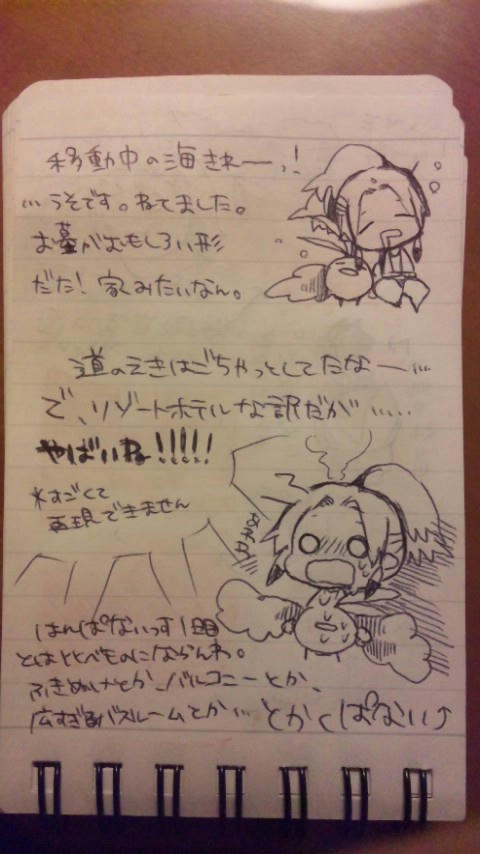 移動中の海きれーっ！
…うそです。ねてました。
お墓がおもしろい形
だた！家みたいなん。
道のえきはごちゃっとしてたなー…
で、リゾートホテルな訳だが……
やばいね!!!!!
*すごくて
再現できません
はんぱないっす1回目
とはととべものにならんわ。
ふきぬけとか、バルコニーとか、
広すぎるバスルームとか…とかくぱない↗